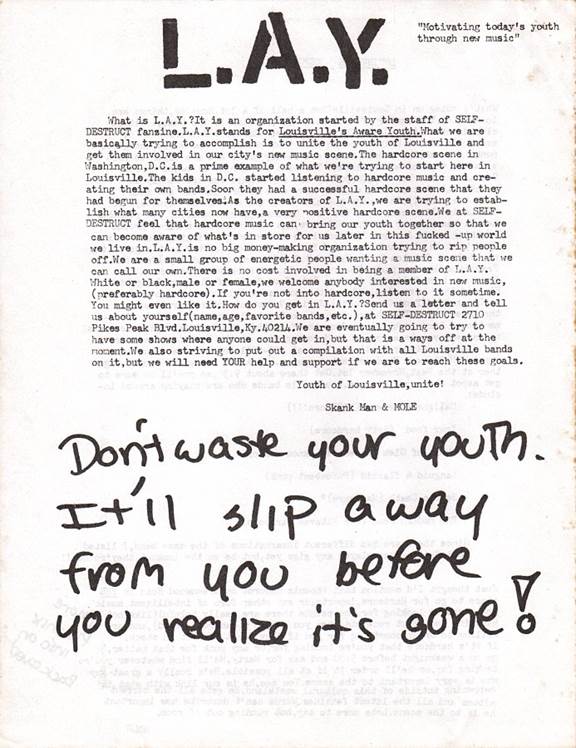 L.A.Y.
"Motivating today's youth
through new music"
What is L.A.Y.?It is an organization started by the staff of SELF-
DESTRUCT fanzine.L.A.Y.stands for Louisville's Aware Youth.What we are
basically trying to accomplish is to unite the youth of Louisville and
get them involved in our city's new music scene.The hardcore scene in
Washington,D.C.is a prime example of what we're trying to start here in
Louisville.The kids in D.C. started listening to hardcore music and cre-
ating their own bands.Soon they had a successful hardcore scene that they
had begun for themselves.As the creators of L.A.Y.,we are trying to estab-
lish what many cities now have,a very positive hardcore scene.We at SELF-
DESTRUCT feel that hardcore music can bring our youth together so that we
can become aware of what's in store for us later in this fucked -up world
we live in.L.A.Y.is no big money-making organization trying to rip people
off.We are a small group of energetic people wanting a music scene that we
can call our own.There is no cost involved in being a member of L.A.Y.
White or black,male or female,we welcome anybody interested in new music,
(preferably hardcore).If you're not into hardcore,listen to it sometime.
You might even like it.How do you get in L.A.Y.?Send us a letter and tell
us about yourself(name,age,favorite bands,etc.),at SELF-DESTRUCT 2710
Pikes Peak Blvd.Louisville,Ky.40214.We are eventually going to try to
have some shows where anyone could get in,but that is a ways off at the
moment.We also striving to put out a compilation with all Louisville bands
on it,but we will need YOUR help and support if we are to reach these goals.
Youth of Louisville,unite!
Skank Man & MOLE
Don't waste your youth.
It'll slip away
from you before
you realize it's gone!